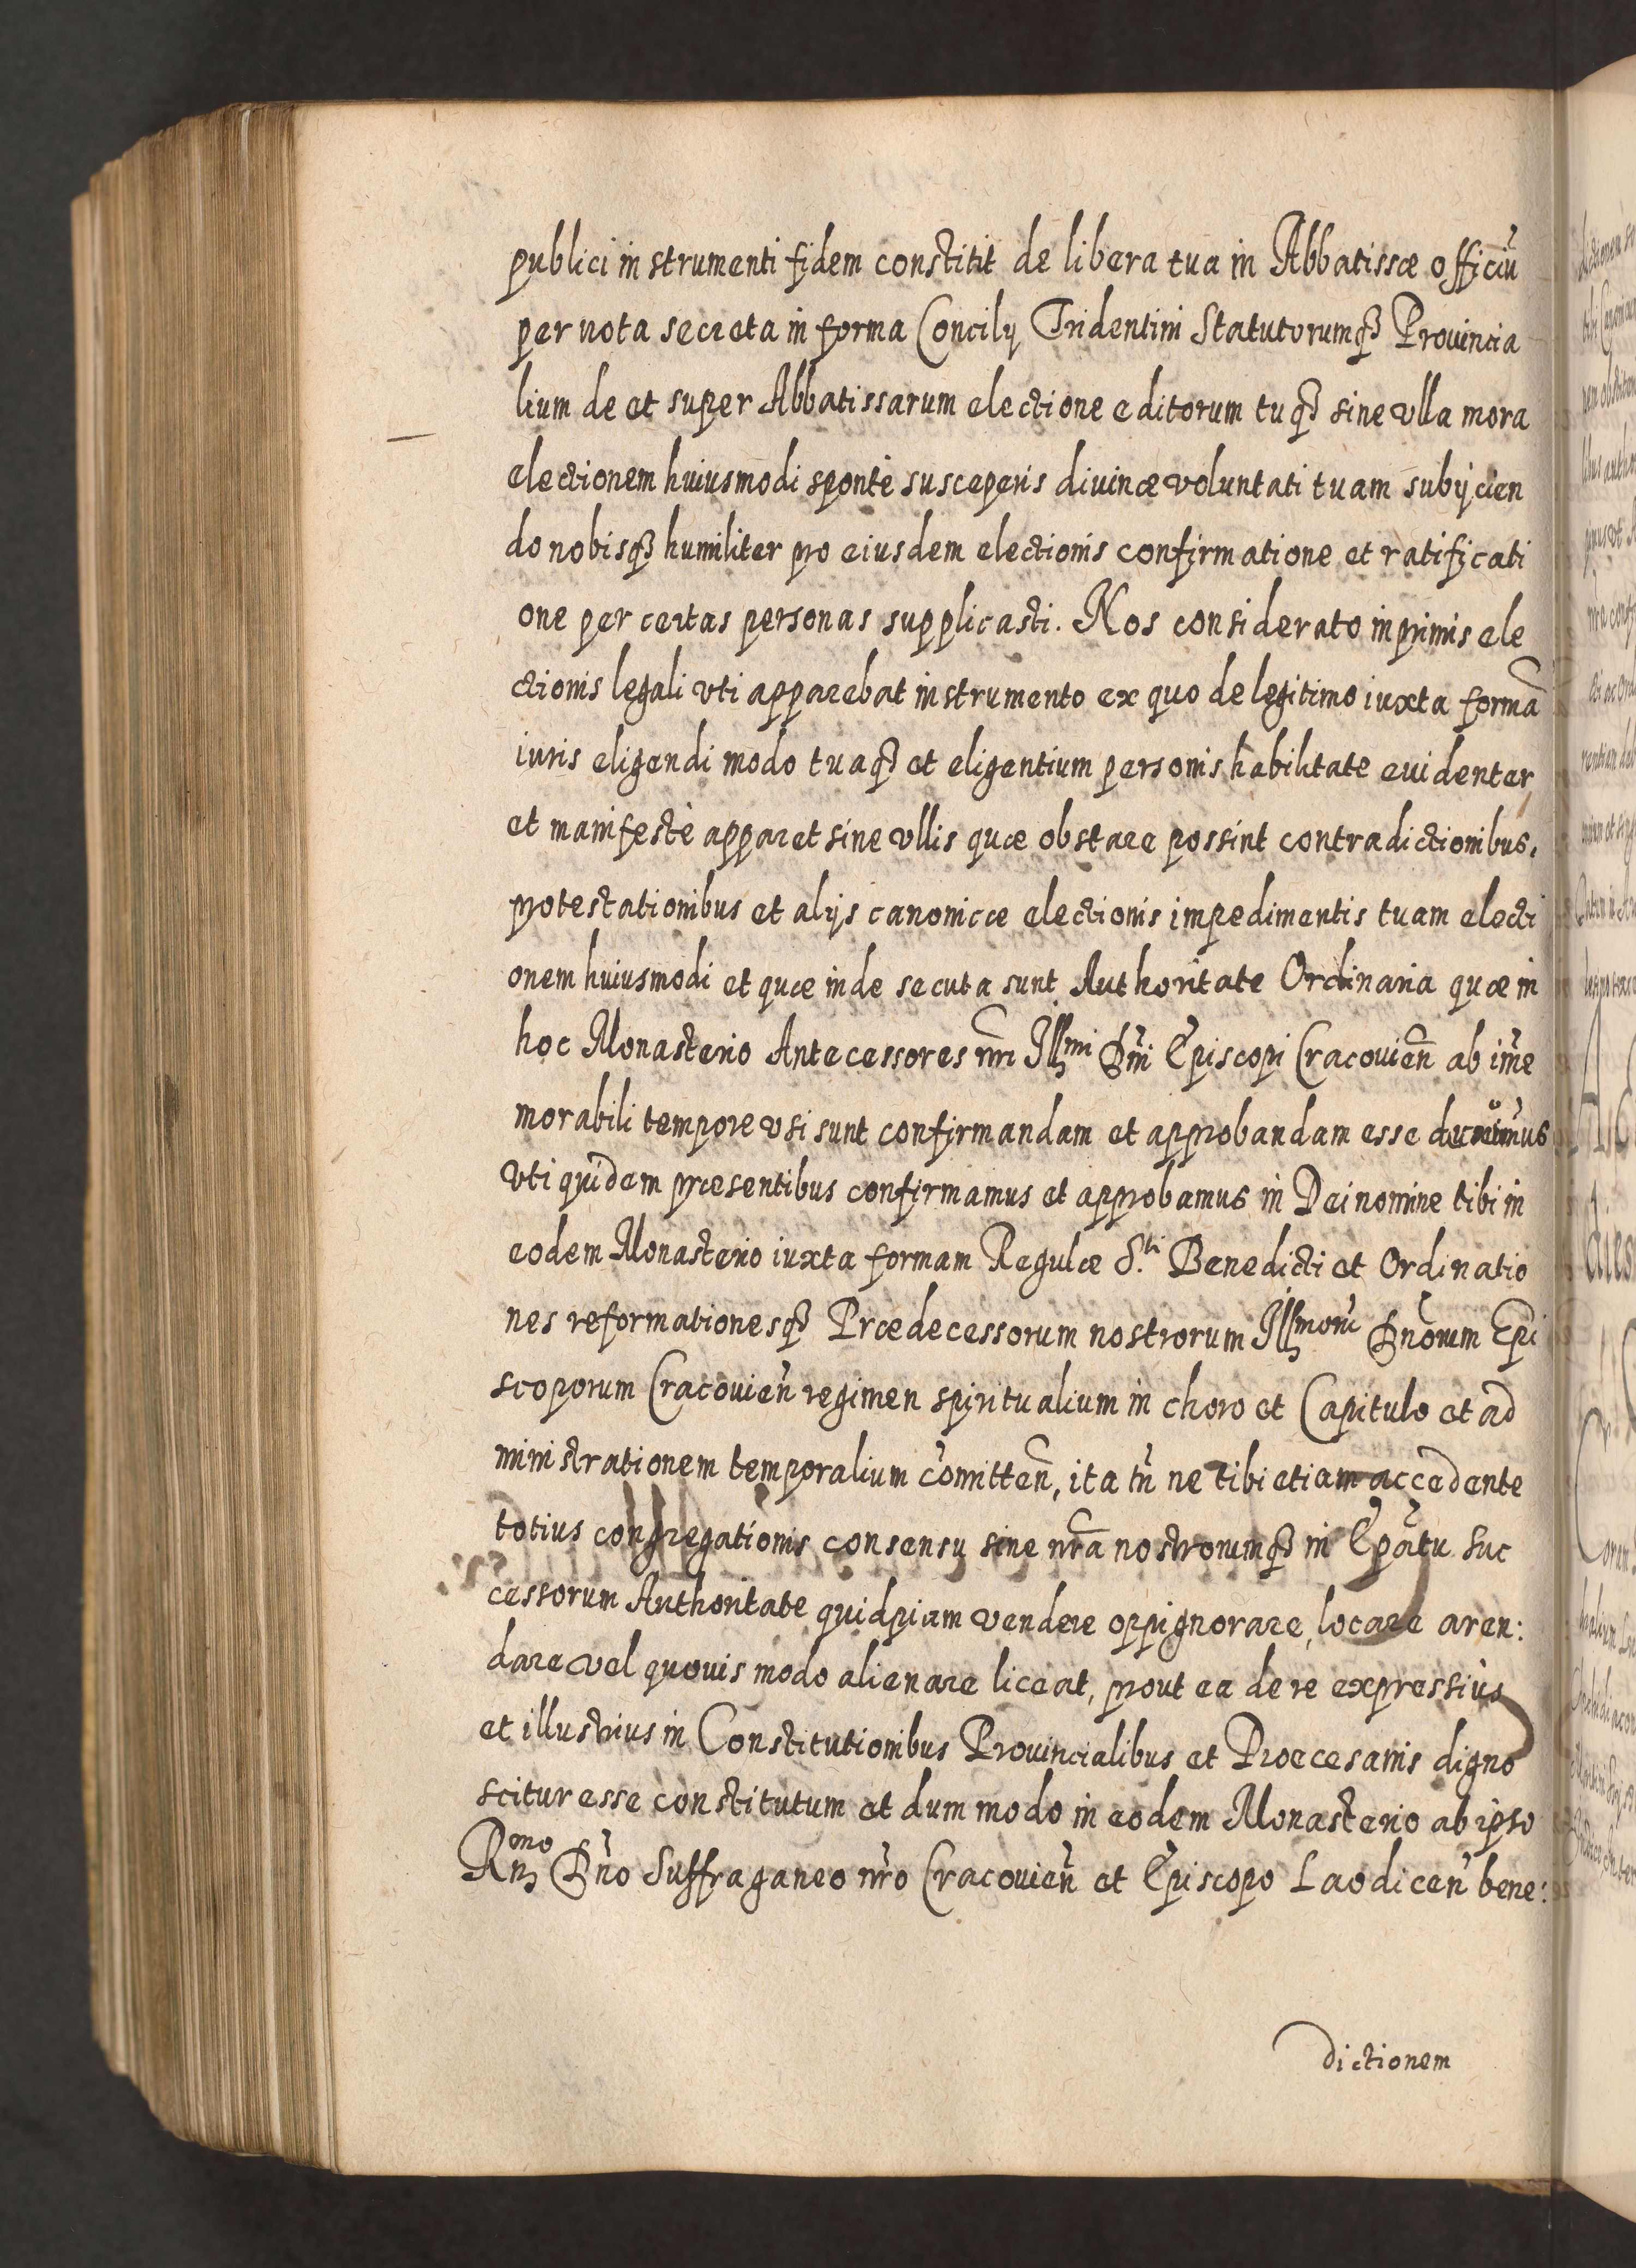 publici instrumenti fidem constitit de libera tua in Abbatissæ officiũ
per uota secreta in forma Concilÿ Tridentini Statutorumq3 Prouincia
lium de et super Abbatissarum electione editorum tuq3 sine vlla mora
electionem huiusmodi spontè susceperis diuinæ voluntati tuam subÿcien
do nobisq3 humiliter pro eiusdem electionis confirmatione et ratificati
one per certas personas supplicasti. Nos considerato inprimis ele
ctionis legali vti apparebat instrumento ex quo de legitimo iuxta formã
iuris eligendi modo tuaq3 et eligentium personis habilitate euidenter
et manifestè apparet sine vllis quæ obstare possint contradictionibus,
protestationibus et alÿs canonicæ electionis impedimentis tuam electi
onem huiusmodi et quæ inde secuta sunt Authoritate Ordinaria quæ in
hoc Monasterio Antecessores nr̃i Illmi Dn̄i Episcopi Cracovien̄ ab im̃e
morabili tempore vsi sunt confirmandam et approbandam esse duximus
Vti quidem præsentibus confirmamus et approbamus in Dei nomine tibi in
eodem Monasterio iuxta formam Regulæ S.ti Benedicti et Ordinatio
nes reformationesq3 Prædecessorum nostrorum Illmorũ Dn̄orum Epi
scoporum Cracouien̄ regimen spiritualium in choro et Capitulo et ad
ministrationem temporalium com̃itten̄, ita tñ ne tibi etiam accedente
totius congregationis consensu sine nr̃a nostrorumq3 in Ep̃atu Suc
cessorum Authoritate quidpiam vendere oppignorare, locare aren:
dare vel quouis modo alienare liceat, prout ea de re expressiùs
et illustrius in Constitutionibus Prouincialibus et Diœcesanis digno
scitur esse constitutum et dum modo in eodem Monasterio ab ipso
Rmo Dn̄o Suffraganeo nr̃o Cracouien̄ et Episcopo Laodicen̄ bene:
dictionem